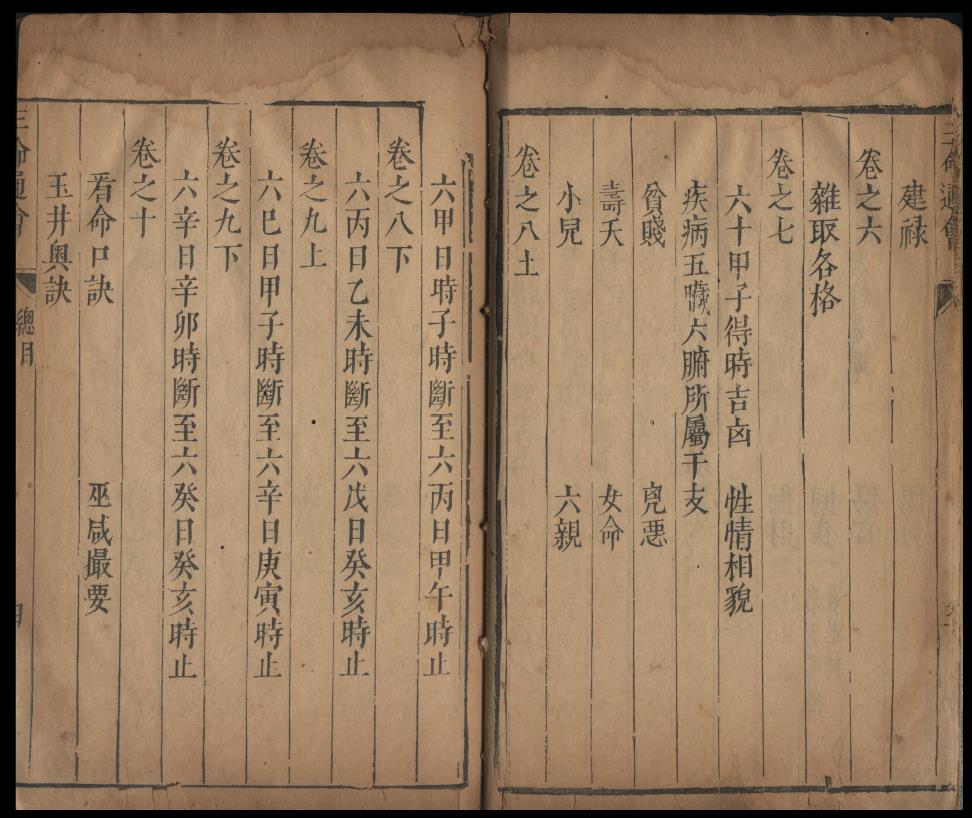 三命通會
建禄
卷之六
雜取各格
卷之七
六十甲子得時吉凶 性情相貌
疾病五臓六腑所屬干支
貧賤 兇惡
壽夭 女命
小兒 六親
卷之八上
六甲日時子時斷至六丙日甲午時止
卷之八下
六丙日乙未時斷至六戊日癸亥時止
卷之九上
六巳日甲子時斷至六辛日庚寅時止
卷之九下
六辛日辛卯時斷至六癸日癸亥時止
卷之十
看命口訣 巫咸撮要
玉井奧訣
三命通會 總目